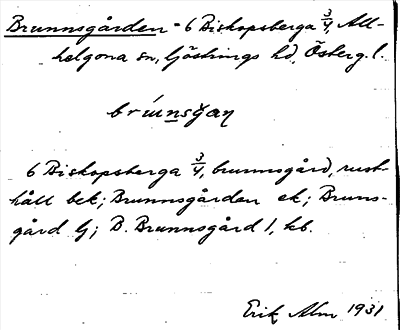 Brunnsgården = 6 Biskopsberga 3/4, All-
helgona sn, Göstrings hd, Österg. l.
brúnsgan
6 Biskopsberga 3/4, brunnsgård, rust-
håll bek; Brunnsgården ek; Bruns-
gård G; B. Brunnsgård 1, kb.
Erik Alm 1931